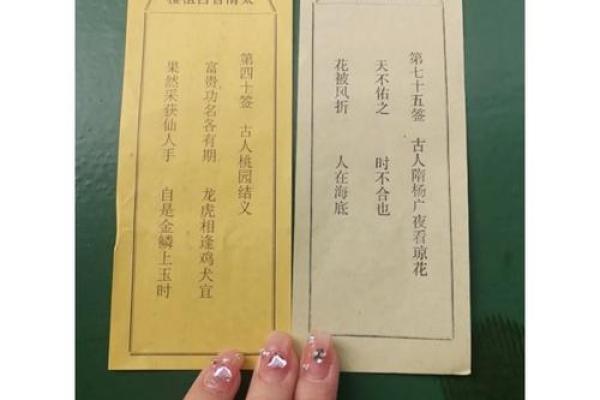 第四十签 古人桃园结义
富贵功名各有期 龙虎相逢鸡犬宜
果然采获仙人手 自是金鳞上玉时
第七十五签 古人隋杨广夜看琼花
天不佑之 时不合也
花被风折 人在海底